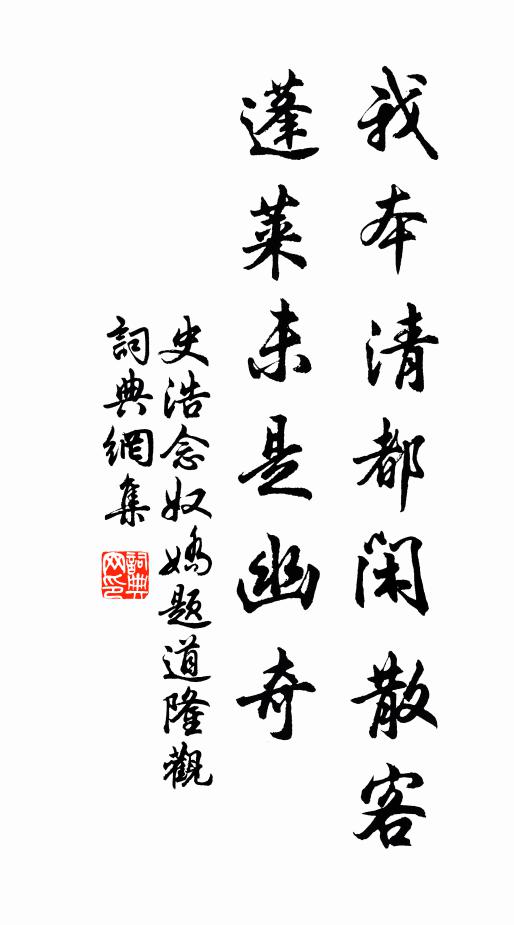 我本清都閑散客
蓬萊未是幽奇
史浩念奴嬌題道隆觀
詞典網集
詞典網印